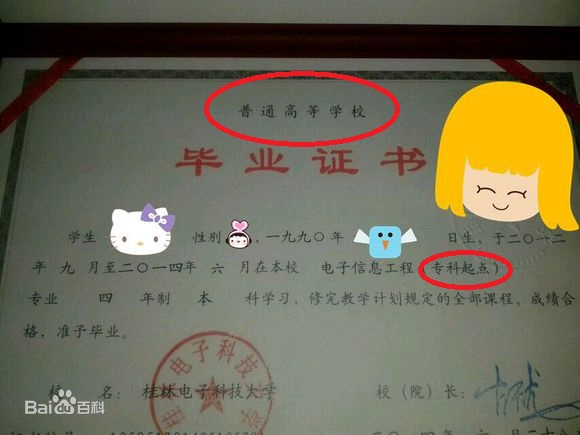 普通高等学校
毕业证书
学生 性别 ，一九九〇年 日生，于二〇一二
年 九 月至二〇一四年 六 月在本校 电子信息工程（专科起点）
专业 四 年制 本 科学习，修完教学计划规定的全部课程，成绩合
格，准予毕业。
校 名：桂林电子科技大学 校（院）长：
桂林电子科技大学
Bai百科